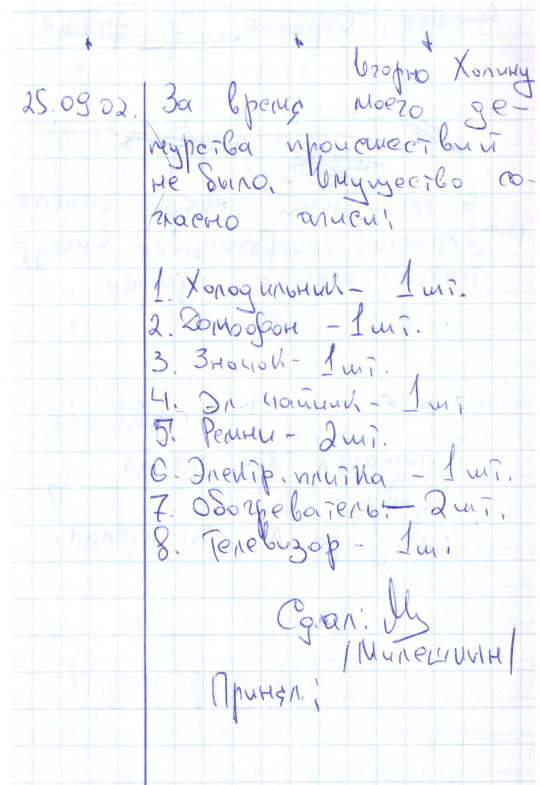 Холину
25.09.02. За время моего де-
журства происшествий
не было. Имущество со-
гласно описи:
1. Холодильник - 1 шт.
2. Домофон - 1 шт.
3. Значок - 1 шт.
4. Эл. чайник - 1 шт
5. Ремни - 2 шт.
6. Электр. плитка - 1 шт.
7. Обогреватель - 2 шт.
8. Телевизор - 1 шт.
Сдал:
/Милешин/
Принял: